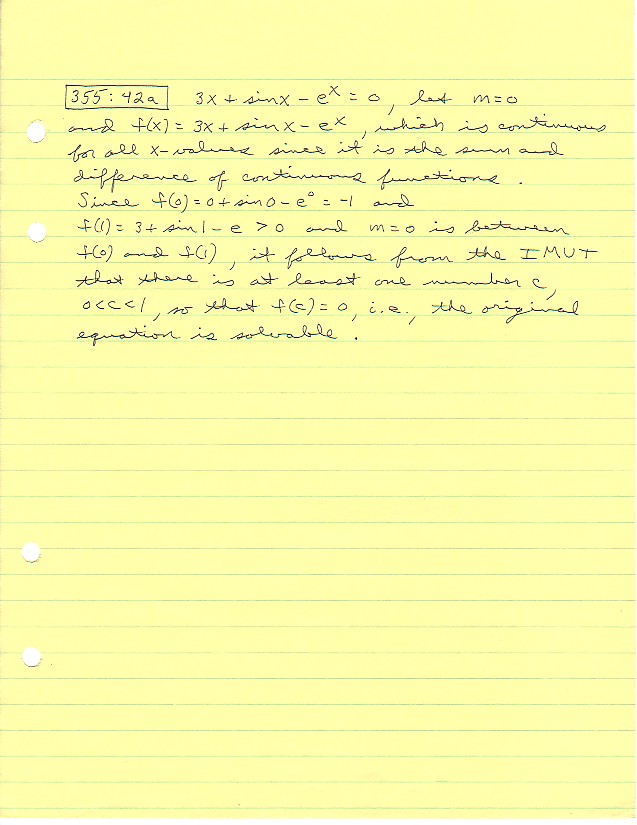 355: 42a 3x + sinx - eˣ = 0, let m=0
and f(x) = 3x + sinx - eˣ, which is continuous
for all x-values since it is the sum and
difference of continuous functions.
Since f(0) = 0 + sin0 - e⁰ = -1 and
f(1) = 3 + sin1 - e > 0 and m=0 is between
f(0) and f(1), it follows from the IMVT
that there is at least one number c,
0<c<1, so that f(c) = 0, i.e., the original
equation is solvable.